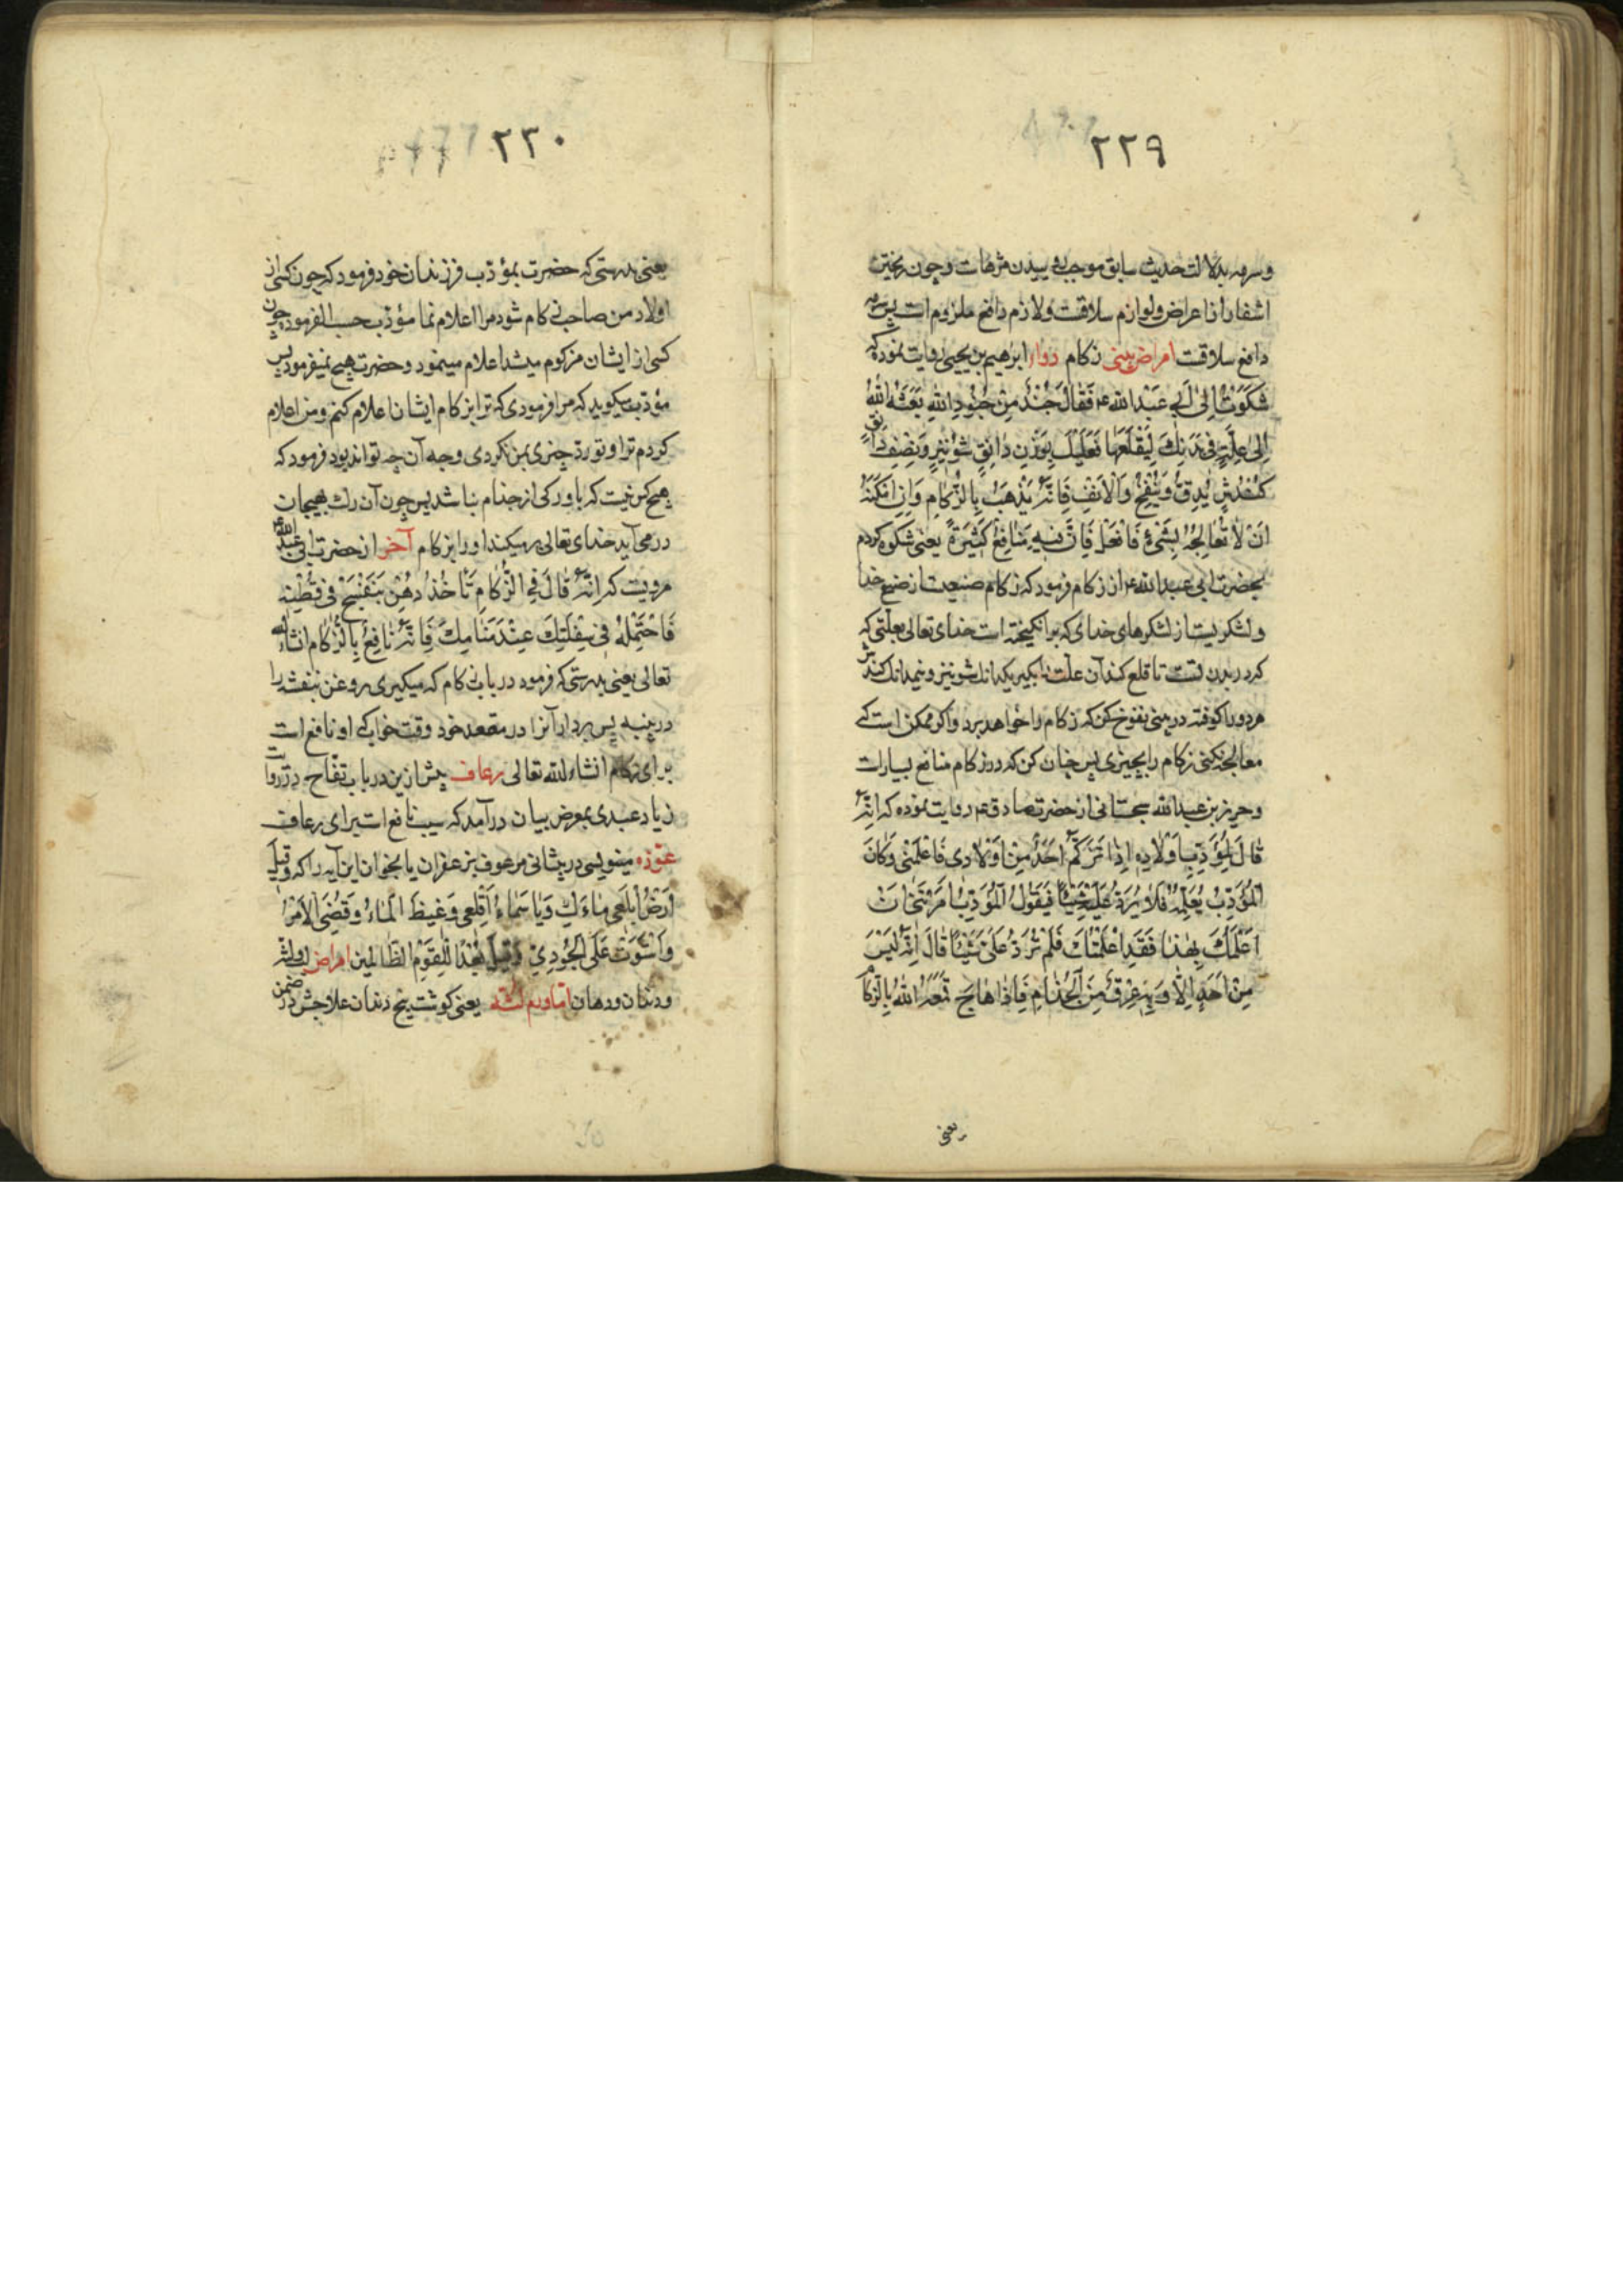 ٢٢٩
وسرمه بدلالت حدیث سابق موجب روییدن مژهاست وچون ریختن
اشفار از اعراض ولوازم سلاقست ولازم دافع ملزوم است پس سرمه
دافع سلاقست امراض بینی زکام دوا ابرهیم بن یحیی روایت نموده که
شَکَوْتُ اِلیٰ اَبی عَبْدِالله ع فَقٰالَ جُنْدٌ مِنْ جُنُودِ اللهِ بَعَثَهُ اللهُ
اِلیٰ عِلَّةٍ فی بَدَنِكَ لِیَقْلَعَهٰا فَعَلَیْكَ بِوَزْنِ دٰانِقٍ شُونیزٍ وَنِصْفِ دٰانِقٍ
کُنْدُشٍ یُدَقُّ وَیُنْفَخُ وَالْاَنْفِ فَاِنَّهُ یَذْهَبُ بِالزُّکٰامِ وَاِنْ اَمْکَنَكَ
اَنْ لٰا تُعٰالِجَهُ بِشَیْءٍ فَافْعَلْ فَاِنَّ فیهِ مَنٰافِعُ کَثیرَةً یعنی شکوه کردم
بحضرت ابی عبدالله ع از زکام فرمود که زکام صنعیست از صنع خدا
ولشکریست از لشکرهای خدای که برانکیخته است خدای تعالی بعلتی که
که در بدن تست تا قلع کند آن علت را بکیر یکدانك شونیز ونیمدانك کندش
هردو را کوفته در بینی نفوخ کن که زکام را خواهد برد واکر ممکن است که
معالجه نکنی زکام را بچیزی پس چنان کن که در زکام منافع بسیارست
وحریز بن عبدالله سجستانی از حضرت صادق ع روایت نموده که اِنَّهُ
قٰالَ لِمُؤَدِّبِ اَوْلٰادِهِ اِذٰا تَزَکَّمَ اَحَدٌ مِنْ اَوْلٰادی فَاعْلِمْنی وَکٰانَ
الْمُؤَدِّبُ یُعْلِمُهُ فَلٰا یَرُدُّ عَلَیْهِ شَیْئًا فَیَقُولُ الْمُؤَدِّبُ اَمَرْتَنی اَنْ
اُعْلِمَكَ بِهٰذٰا فَقَدْ اَعْلَمْتُكَ فَلَمْ تَرُدَّ عَلَیَّ شَیْئًا قٰالَ اِنَّهُ لَیْسَ
مِنْ اَحَدٍ اِلّٰا وَبِهِ عِرْقٌ مِنَ الْجُذٰامِ فَاِذٰا هٰاجَ قَمَعَهُ اللهُ بِالزُّکٰامِ
یعنی
٢٣٠
یعنی بدرستی که حضرت بمؤدب فرزندان خود فرمود که چون کسی از
اولاد من صاحب زکام شود مرا اعلام نما مؤدب حسب الفرموده چون
کسی از ایشان مزکوم میشد اعلام مینمود وحضرت هیچ نمیفرمود پس
مؤدب میکوید که مرا فرمودی که ترا بزکام ایشان اعلام کنم ومن اعلام
کردم ترا وتو رد چیزی بمن نکردی وجه آن چه تواند بود فرمود که
هیچ کس نیست که با و رکی از جذام نباشد پس چون آن رك بهیجان
درمی آید خدای تعالی میکند او را بزکام آخر از حضرت ابی عبدالله ع
مرویست که اِنَّهُ قٰالَ فِی الزُّکٰامِ تَأْخُذُ دُهْنَ بَنَفْسَجٍ فی قُطْنَةٍ
فَاحْتَمِلْهُ فی سِفْلَتِكَ عِنْدَ مَنٰامِكَ فَاِنَّهُ نٰافِعٌ بِالزُّکٰامِ انشاءالله
تعالی یعنی بدرستی که فرمود در باب زکام که میکیری روغن بنفشه را
در پنبه پس بردار آنرا در مقعد خود وقت خواب که او نافع است
برای زکام انشاءالله تعالی رعاف پیش ازین در باب تفاح در روایت
زیاد عبدی بمعرض بیان درآمد که سیب نافع است برای رعاف
عوذه مینویسی در پیشانی مرعوف بزعفران یا بخوان این آیه را که وَقیلَ یٰا
اَرْضُ ابْلَعی مٰاءَكِ وَیٰا سَمٰاءُ اَقْلِعی وَغیضَ الْمٰاءُ وَقُضِیَ الْاَمْرُ
وَاسْتَوَتْ عَلَی الْجُودِیِّ وَقیلَ بُعْدًا لِلْقَوْمِ الظّٰالِمین امراض لب ولثه
ودندان ودهان اما ورم لثه یعنی کوشت بیخ دندان علاجش در ضمن